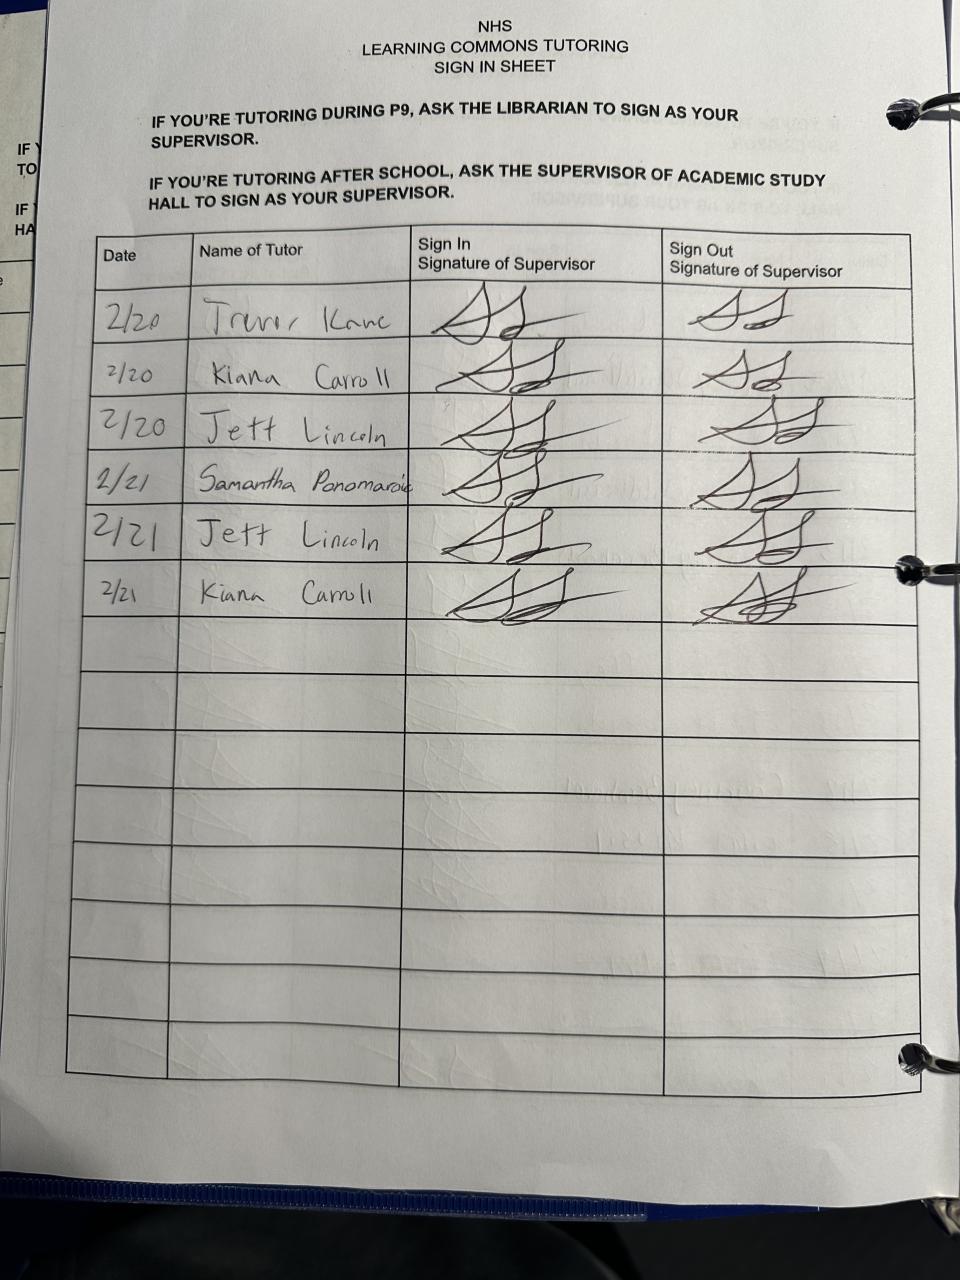 NHS
LEARNING COMMONS TUTORING
SIGN IN SHEET
IF YOU'RE TUTORING DURING P9, ASK THE LIBRARIAN TO SIGN AS YOUR
SUPERVISOR.
IF YOU'RE TUTORING AFTER SCHOOL, ASK THE SUPERVISOR OF ACADEMIC STUDY
HALL TO SIGN AS YOUR SUPERVISOR.
Date Name of Tutor Sign In Signature of Supervisor Sign Out Signature of Supervisor
2/20 Trevor Kane
2/20 Kiana Carroll
2/20 Jett Lincoln
2/21 Samantha
2/21 Jett Lincoln
2/21 Kiana Carroll
IF
TO
IF
HA